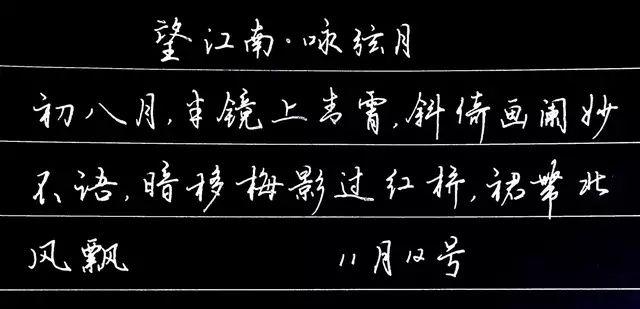 望江南·咏弦月
初八月,半镜上青霄,斜倚画阑妙
不语,暗移梅影过红桥,裙帶北
风飘 11月12号